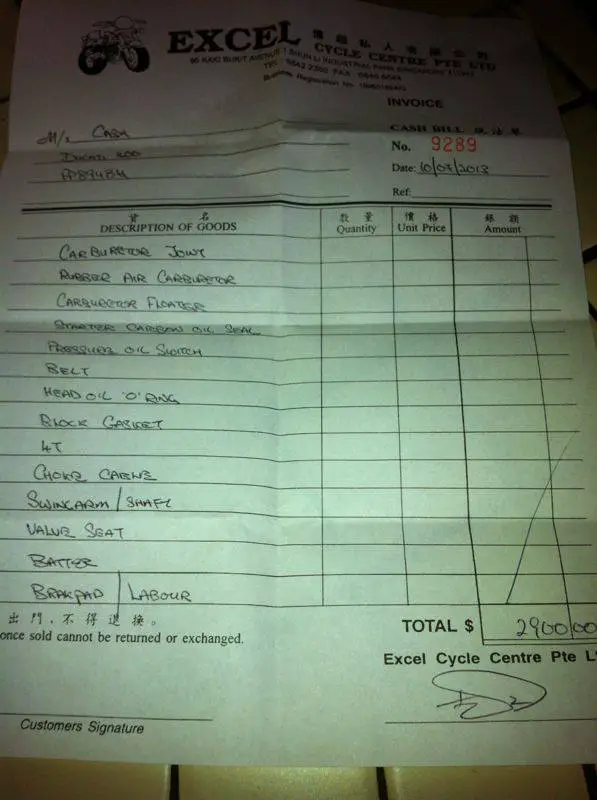 EXCEL
CYCLE CENTRE PTE LTD
INVOICE
CASH BILL
No. 9289
M/s CASH
DUCATI 400
Date: 10/07/2013
Ref:
貨 名 數 量 價 格 銀 額
DESCRIPTION OF GOODS Quantity Unit Price Amount
CARBURETOR JOINT
RUBBER AIR CARBURETOR
CARBURETOR FLOATER
STARTER CARBON OIL SEAL
PRESSURE OIL SWITCH
BELT
HEAD OIL 'O' RING
BLOCK GASKET
4T
CHOKE CABLE
SWINGARM / SHAFT
VALVE SEAT
BATTER
BRAKPAD / LABOUR
出 門 , 不 得 退 換 。
once sold cannot be returned or exchanged.
TOTAL $ 2900 00
Excel Cycle Centre Pte L
Customers Signature